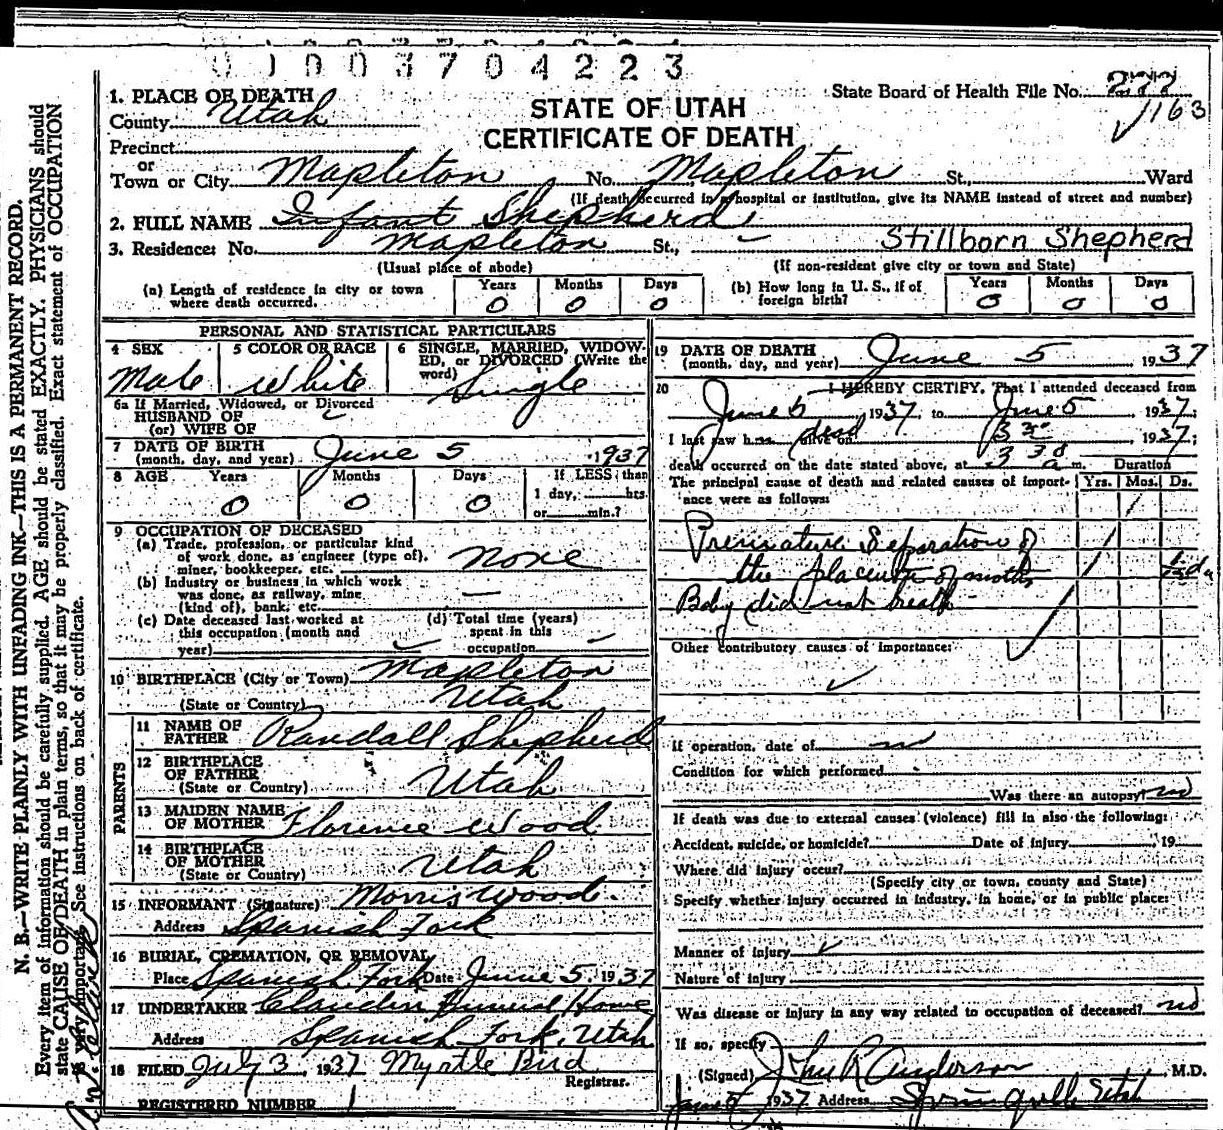 0 1 0 0 3 7 0 4 2 2 3
1. PLACE OF DEATH
County Utah
STATE OF UTAH
CERTIFICATE OF DEATH
State Board of Health File No.
163
Precinct
or
Town or City Mapleton No. Mapleton St., Ward
(If death occurred in a hospital or institution, give its NAME instead of street and number)
2. FULL NAME Infant Shepherd
3. Residence: No. Mapleton St., Stillborn Shepherd
(Usual place of abode) (If non-resident give city or town and State)
(a) Length of residence in city or town where death occurred. Years 0 Months 0 Days 0
(b) How long in U. S., if of foreign birth? Years 0 Months 0 Days 0
PERSONAL AND STATISTICAL PARTICULARS
4 SEX Male
5 COLOR OR RACE White
6 SINGLE, MARRIED, WIDOWED, or DIVORCED (Write the word) Single
6a If Married, Widowed, or Divorced
HUSBAND OF
(or) WIFE OF
7 DATE OF BIRTH
(month, day, and year) June 5 1937
8 AGE Years 0 Months 0 Days 0 If LESS than
1 day, hrs.
or min.?
9 OCCUPATION OF DECEASED
(a) Trade, profession, or particular kind
of work done, as engineer (type of),
miner, bookkeeper, etc. none
(b) Industry or business in which work
was done, as railway, mine
(kind of), bank, etc. —
(c) Date deceased last worked at
this occupation (month and
year)
(d) Total time (years)
spent in this
occupation
10 BIRTHPLACE (City or Town) Mapleton
(State or Country) Utah
PARENTS
11 NAME OF
FATHER Randall Shepherd
12 BIRTHPLACE
OF FATHER
(State or Country) Utah
13 MAIDEN NAME
OF MOTHER Florence Wood
14 BIRTHPLACE
OF MOTHER
(State or Country) Utah
15 INFORMANT (Signature) Morris Wood.
Address Spanish Fork
16 BURIAL, CREMATION, OR REMOVAL
Place Spanish Fork Date June 5, 1937
17 UNDERTAKER Claudin Funeral Home
Address Spanish Fork, Utah
18 FILED July 3, 1937 Myrtle Bird
Registrar.
REGISTERED NUMBER 1
19 DATE OF DEATH
(month, day, and year) June 5 1937
20 I HEREBY CERTIFY, That I attended deceased from
June 5, 1937, to June 5, 1937;
I last saw h dead alive on 3 30, 1937;
death occurred on the date stated above, at 3 30 a m. Duration
The principal cause of death and related causes of importance were as follows: Yrs. Mos. Ds.
Premature Separation of
the placenta of mother
Baby did not breath
Other contributory causes of importance:
If operation, date of no
Condition for which performed
Was there an autopsy? no
If death was due to external causes (violence) fill in also the following:
Accident, suicide, or homicide? Date of injury 19
Where did injury occur?
(Specify city or town, county and State)
Specify whether injury occurred in industry, in home, or in public place:
Manner of injury
Nature of injury
Was disease or injury in any way related to occupation of deceased? no
If so, specify
(Signed) John R Anderson M.D.
June 5, 1937 Address Springville Utah
N. B.—WRITE PLAINLY WITH UNFADING INK—THIS IS A PERMANENT RECORD.
Every item of information should be carefully supplied. AGE should be stated EXACTLY. PHYSICIANS should
state CAUSE OF DEATH in plain terms, so that it may be properly classified. Exact statement of OCCUPATION
is very important. See instructions on back of certificate.